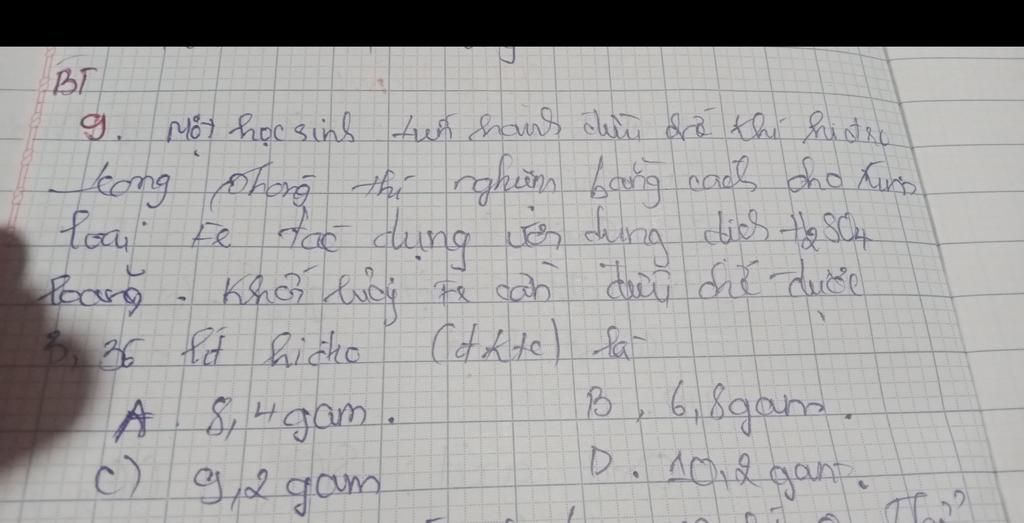 BT
9. Một học sinh tiến hành điều chế khí hiđro
trong phòng thí nghiệm bằng cách cho kim
loại Fe tác dụng với dung dịch H2SO4
loãng. Khối lượng Fe cần điều chế được
3,36 lít hiđro (đktc) là
A. 8,4 gam. B, 6,8 gam.
C) 9,2 gam D. 10,2 gam.